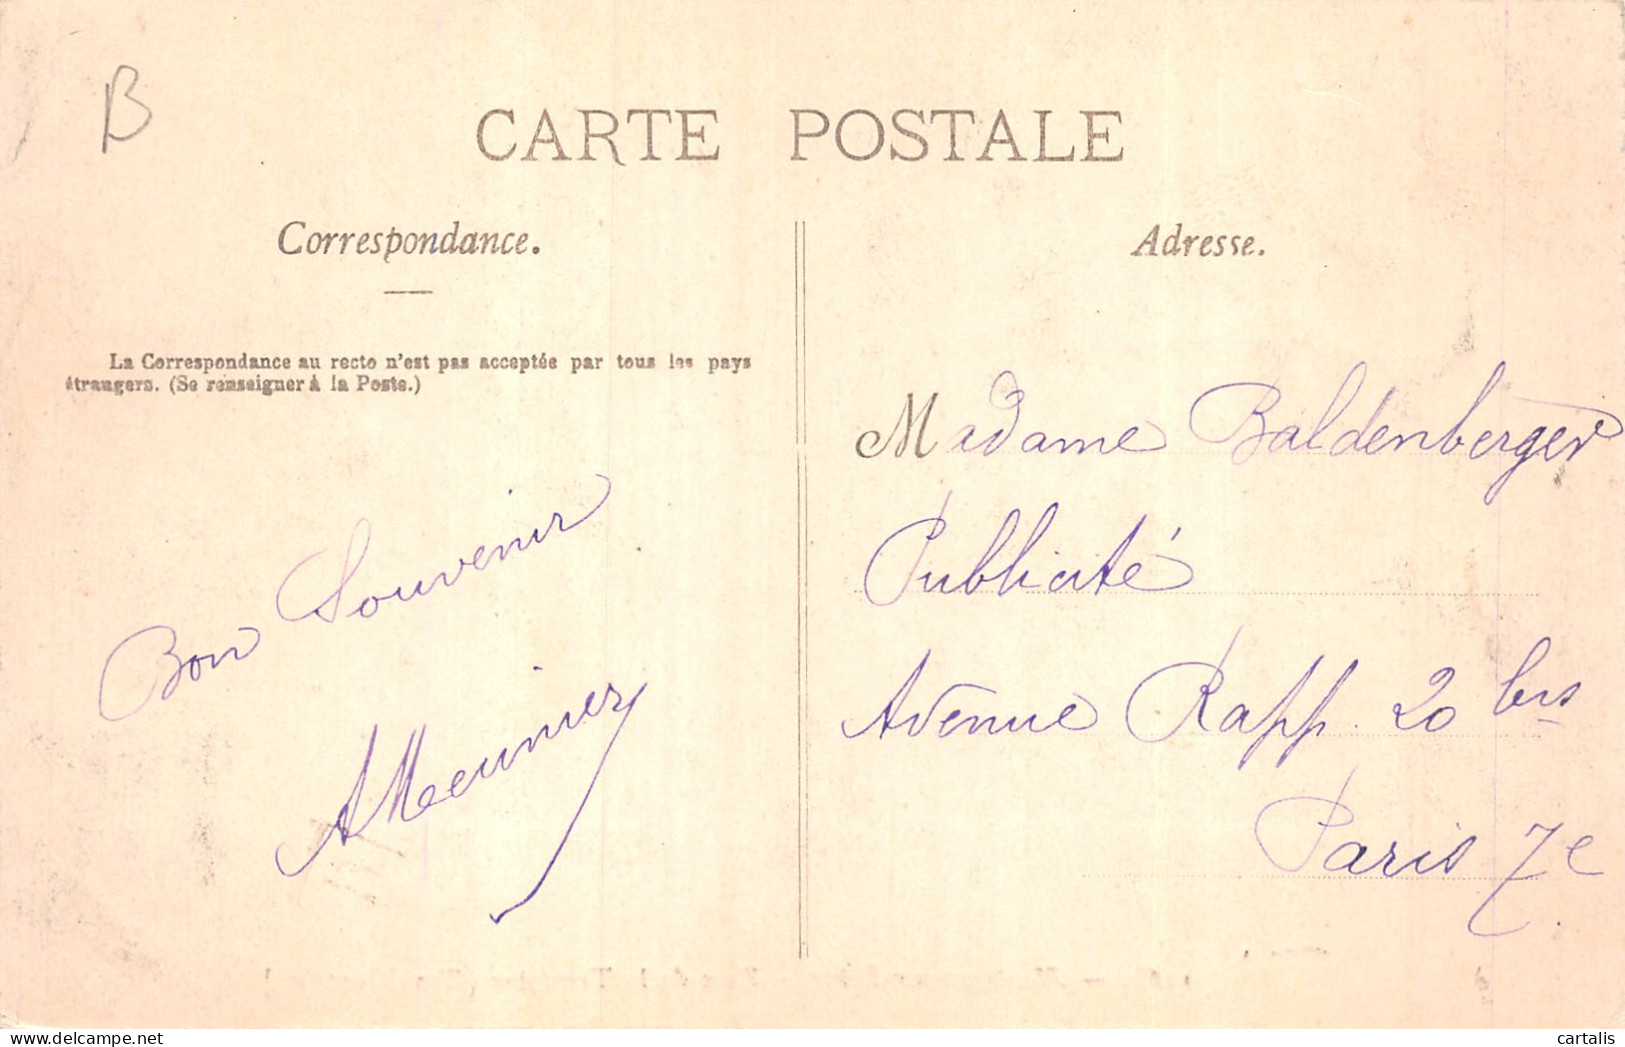 B
CARTE POSTALE
Correspondance.
La Correspondance au recto n'est pas acceptée par tous les pays
étrangers. (Se renseigner à la Poste.)
Bon Souvenir
AMeunier
Adresse.
Madame Baldenberger
Publicité
Avenue Rapp. 20 bis
Paris 7e
cartalis